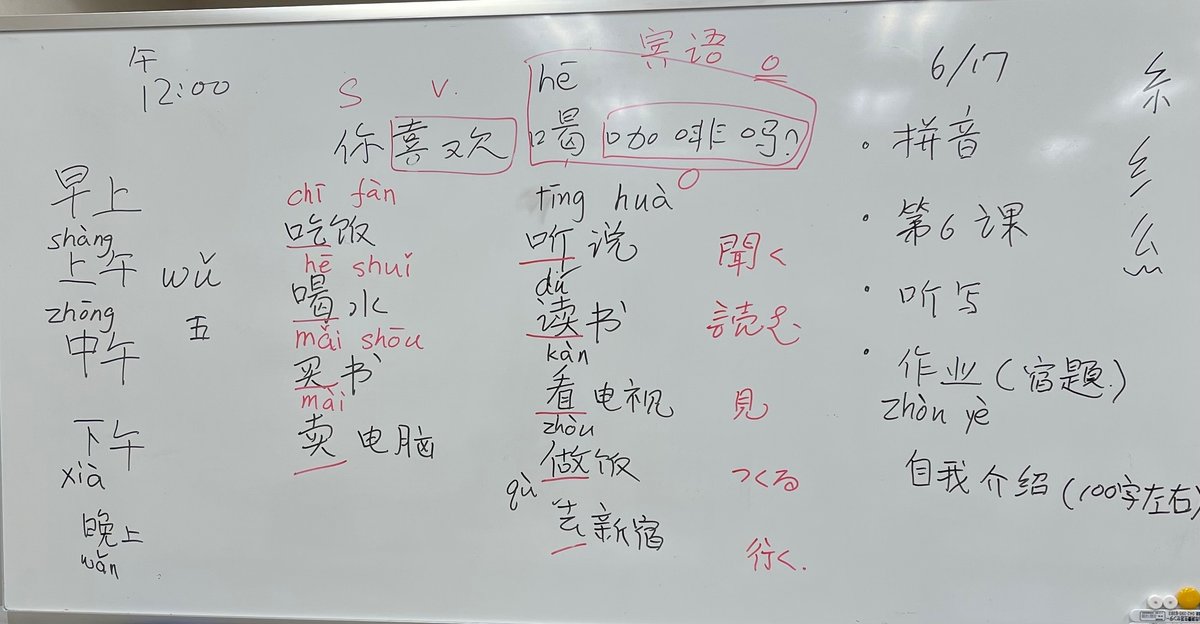 午
12:00
早上
shàng
上午 wǔ
zhōng 五
中午
下午
xià
晚上
wǎn
S V.
你喜欢
hē
喝咖啡吗?
宾语
O
O
chī fàn
吃饭
hē shuǐ
喝水
mǎi shōu
买书
mài
卖电脑
tīng huà
听说 聞く
dú
读书 読む
kàn
看电视 見
zhòu
做饭 つくる
qù
去新宿 行く.
6/17
・拼音
・第6课
・听写
・作业(宿題.)
zhòu yè
自我介绍(100字左右)
糸
纟